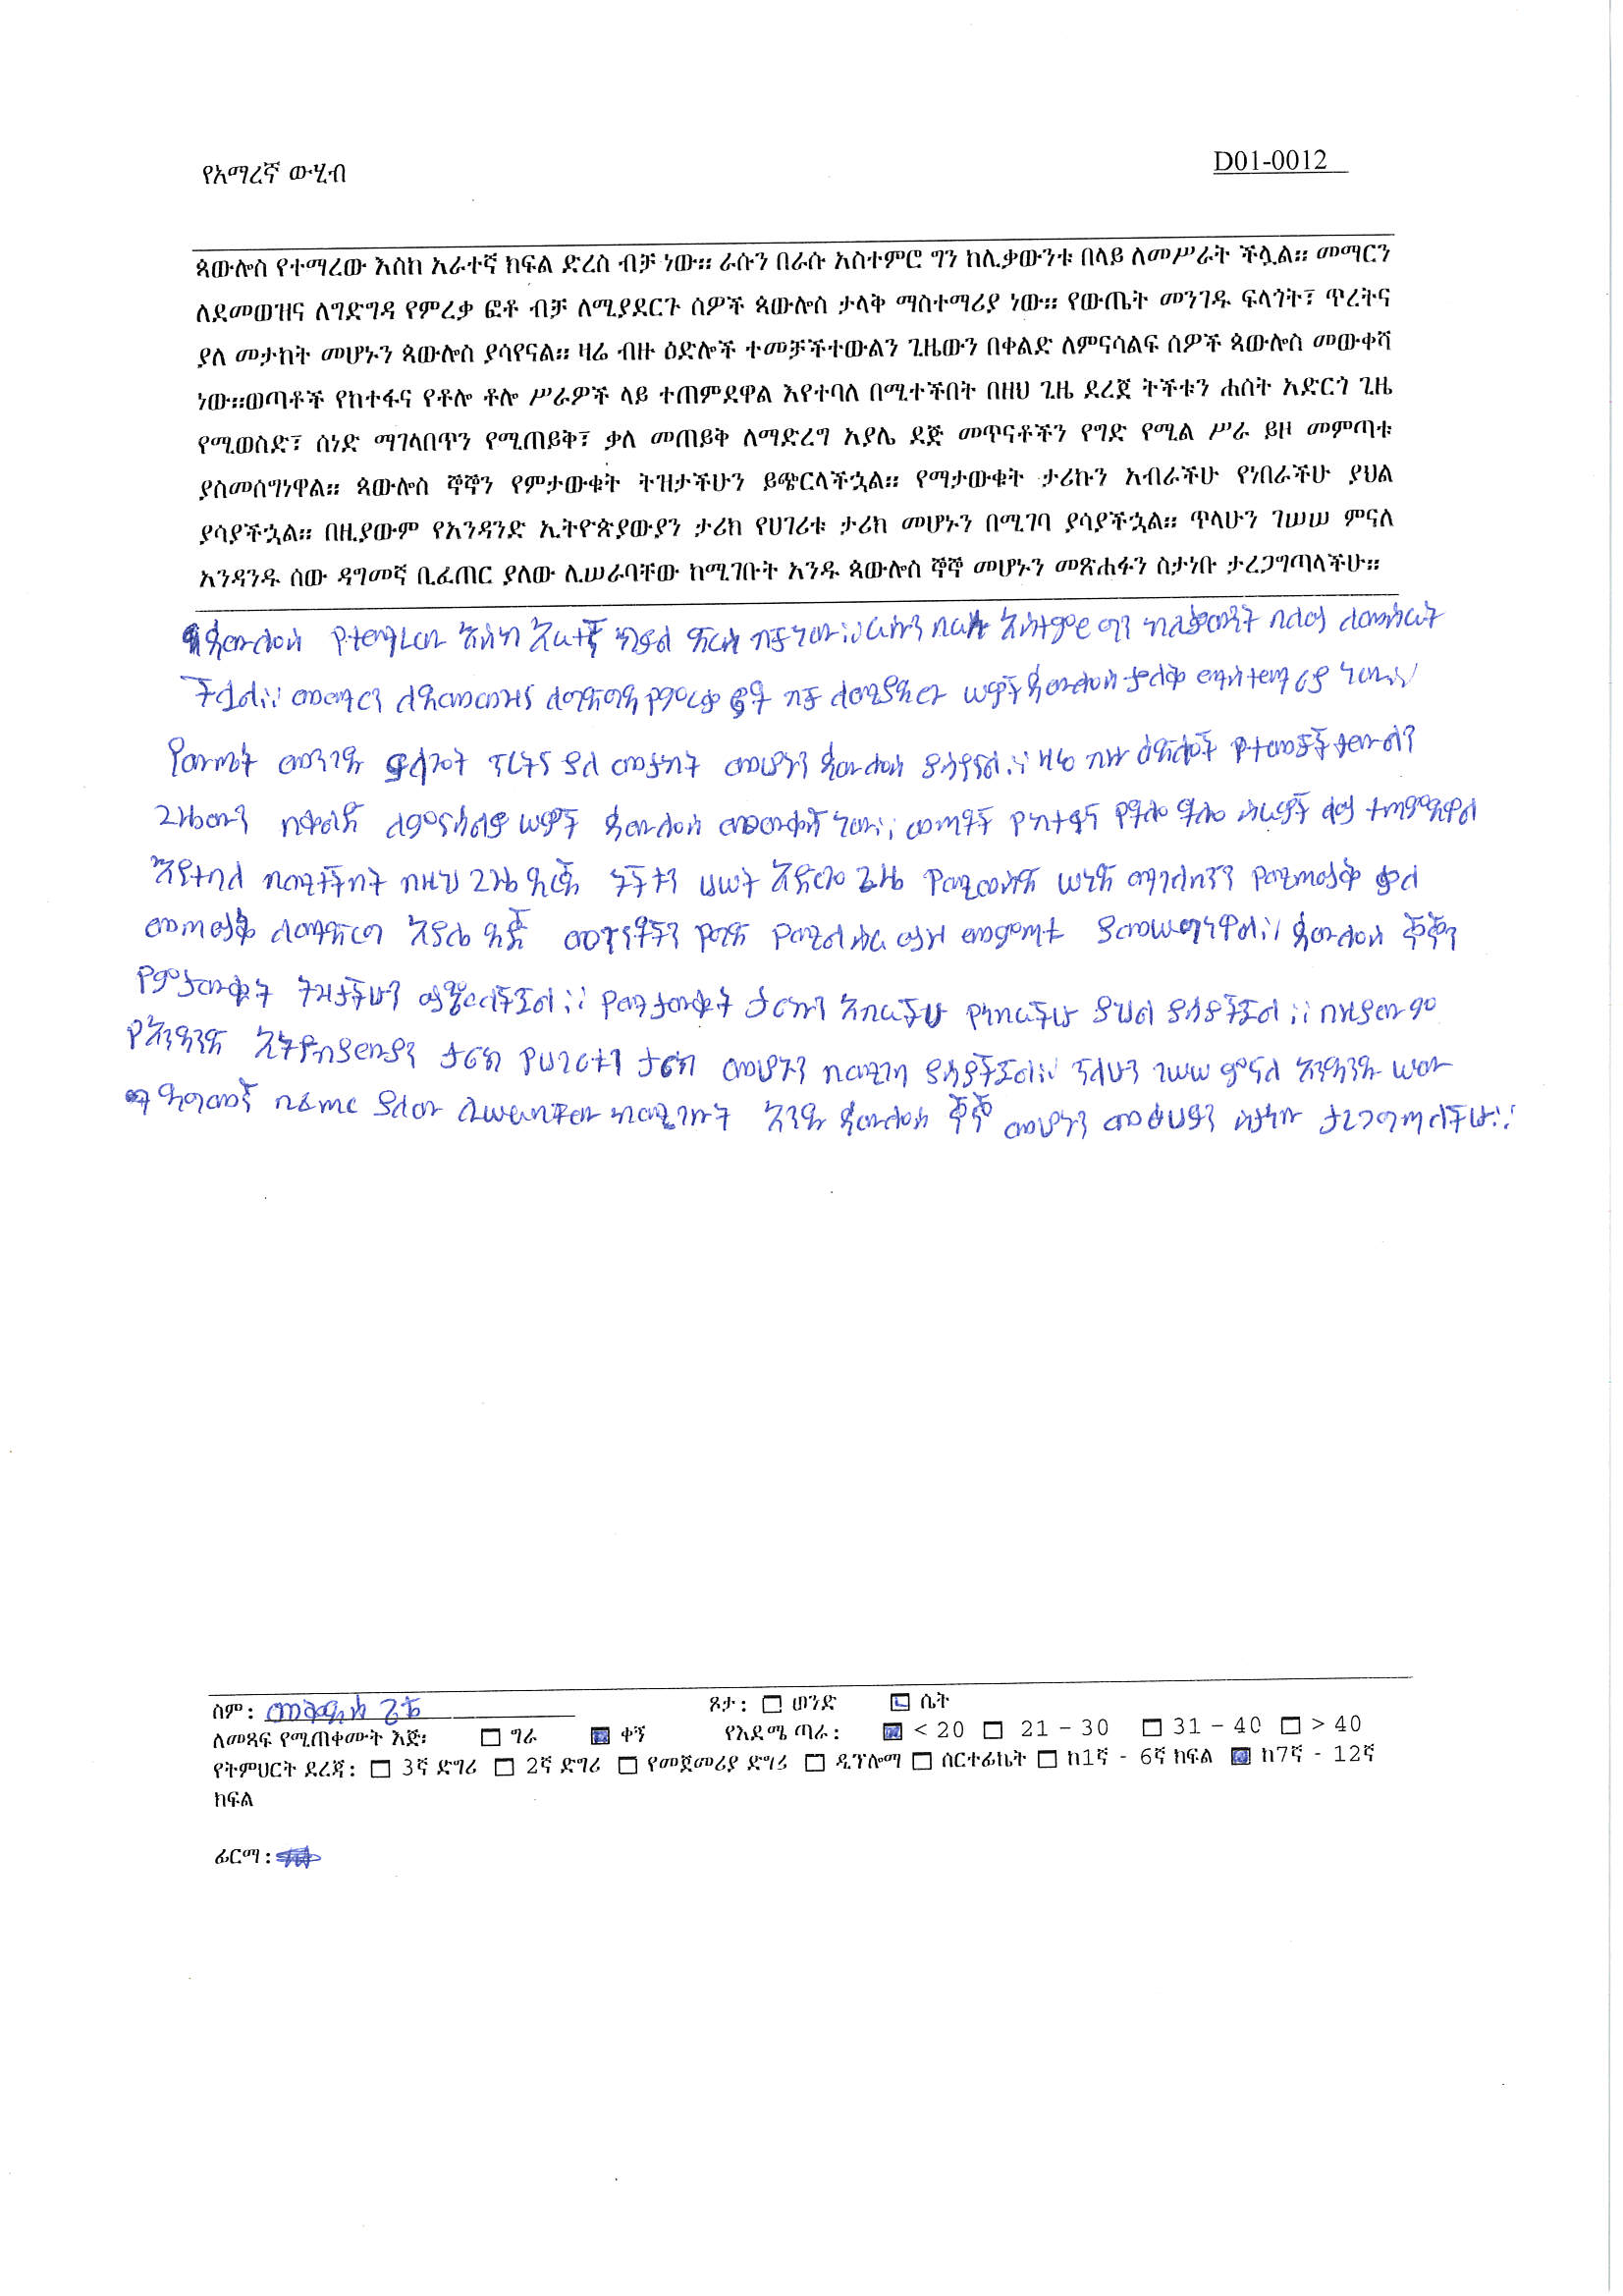 የአማረኛ ውሂብ
D01-0012
ጳውሎስ የተማረው እስከ አራተኛ ክፍል ድረስ ብቻ ነው። ራሱን በራሱ አስተምሮ ግን ከሊቃውንቱ በላይ ለመሥራት ችሏል። መማርን
ለደመወዝና ለግድግዳ የምረቃ ፎቶ ብቻ ለሚያደርጉ ሰዎች ጳውሎስ ታላቅ ማስተማሪያ ነው። የውጤት መንገዱ ፍላጎት፣ ጥረትና
ያለ መታከት መሆኑን ጳውሎስ ያሳየናል። ዛሬ ብዙ ዕድሎች ተመቻችተውልን ጊዜውን በቀልድ ለምናሳልፍ ሰዎች ጳውሎስ መውቀሻ
ነው።ወጣቶች የከተፋና የቶሎ ቶሎ ሥራዎች ላይ ተጠምደዋል እየተባለ በሚተችበት በዘህ ጊዜ ደረጀ ትችቱን ሐሰት አድርጎ ጊዜ
የሚወስድ፣ ሰነድ ማገላበጥን የሚጠይቅ፣ ቃለ መጠይቅ ለማድረግ አያሌ ደጅ መጥናቶችን የግድ የሚል ሥራ ይዞ መምጣቱ
ያስመሰግነዋል። ጳውሎስ ኞኞን የምታውቁት ትዝታችሁን ይጭርላችኋል። የማታውቁት ታሪኩን አብራችሁ የነበራችሁ ያህል
ያሳያችኋል። በዚያውም የአንዳንድ ኢትዮጵያውያን ታሪክ የሀገሪቱ ታሪክ መሆኑን በሚገባ ያሳያችኋል። ጥላሁን ገሠሠ ምናለ
አንዳንዱ ሰው ዳግመኛ ቢፈጠር ያለው ሊሠራባቸው ከሚገቡት አንዱ ጳውሎስ ኞኞ መሆኑን መጽሐፋን ስታነቡ ታረጋግጣላችሁ።
ጳውሎስ የተማረው እስከ አራተኛ ክፍል ድረስ ብቻ ነው። ራሱን በራሱ አስተምሮ ግን ከሊቃውንት በላይ ለመስራት
ችሏል። መማርን ለዳመወዝና ለግድግዳ የምረቃ ፎቶ ብቻ ለሚያዳርጉ ሠዎች ጳውሎስ ታላቅ ማስተማሪያ ነው።
የውጤት መንገዱ ፍላጎት ጥረትና ያለ መታከት መሆኑን ጳውሎስ ያሳየናል። ዛሬ ብዙ ዕድሎች የተመቻችተውልን
ጊዜውን በቀልድ ለምናሳልፍ ሠዎች ጳውሎስ መውቀሻ ነው። ወጣቶች የከተፋና የቶሎ ቶሎ ስራዎች ላይ ተጠምዳዋል
እየተባለ በሚተችበት በዚህ ጊዜ ዳረጀ ትችቱን ሀሠት አድርጎ ጊዜ የሚወስድ ሠነድ ማገላበጥን የሚጠይቅ ቃለ
መጠይቅ ለማድረግ አያሌ ዳጅ መጥናቶችን የግድ የሚል ስራ ይዞ መምጣቱ ያስመሠግነዋል። ጳውሎስ ኞኞን
የምታውቁት ትዝታችሁን ይጭርላችኋል። የማታውቁት ታሪኩን አብራችሁ የነበራችሁ ያህል ያሳያችኋል። በዚያውም
የአንዳንድ ኢትዮጵያውያን ታሪክ የሀገሪቱን ታሪክ መሆኑን በሚገባ ያሳያችኋል። ጥላሁን ገሠሠ ምናለ አንዳንዱ ሠው
ዳግመኛ ቢፈጠር ያለው ሊሠራባቸው ከሚገቡት አንዱ ጳውሎስ ኞኞ መሆኑን መፅሀፋን ስታነቡ ታረጋግጣላችሁ።
ስም: ጌቱ ጾታ: ወንድ ሴት
ለመጻፍ የሚጠቀሙት እጅ፡ ግራ ቀኝ የእደሜ ጣራ: < 20 21 - 30 31 - 40 > 40
የትምህርት ደረጃ: 3ኛ ድግሪ 2ኛ ድግሪ የመጀመሪያ ድግሪ ዲፕሎማ ሰርተፊኬት ከ1ኛ - 6ኛ ክፍል ከ7ኛ - 12ኛ
ክፍል
ፊርማ: